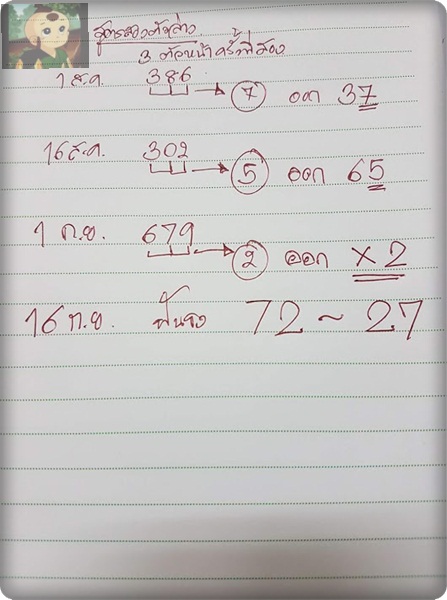 สูตรสองตัวล่าง
3 ตัวหน้าครั้งที่สอง
1 ส.ค. 386 → 7 ออก 37
16 ส.ค. 302 → 5 ออก 65
1 ก.ย. 679 → 2 ออก x2
16 ก.ย. ฟันธง 72 ~ 27